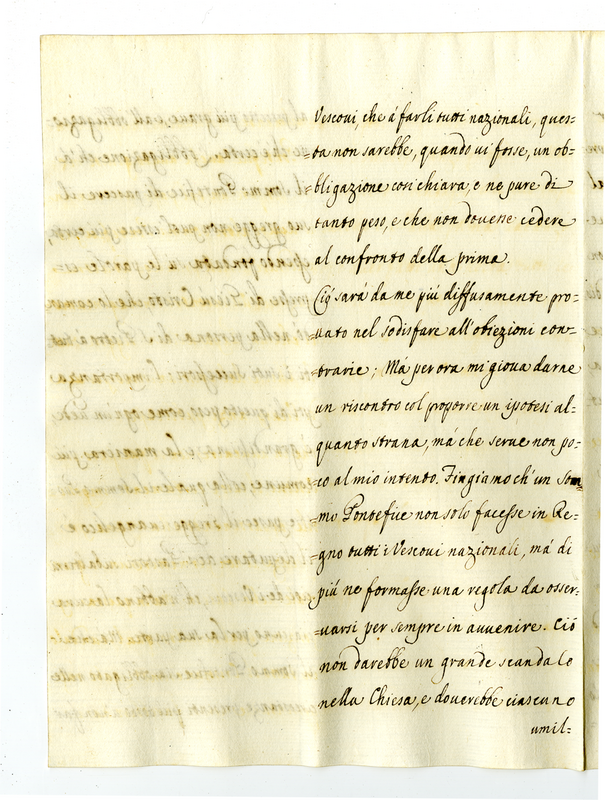 Vescovi, che á farli tutti nazionali, ques-
ta non sarebbe, quando vi fosse, un ob-
=bligazione così chiara, e ne pure di
tanto peso, e che non dovesse cedere
al confronto della prima.
Ció sará da me piú diffusamente pro-
=vato nel sodisfare all'obiezioni con-
=trarie; Má per ora mi giova darne
un riscontro col proporre un ipotesi al-
quanto strana, má che serve non po-
=co al mio intento. Fingiamo ch'un Som=
=mo Pontefice non solo facesse in Re-
=gno tutti i Vescovi nazionali, má di
piú ne formasse una regola da osser-
=varsi per sempre in avvenire. Ció
non darebbe un grande scandalo
nella Chiesa, e doverebbe ciascuno
umil=